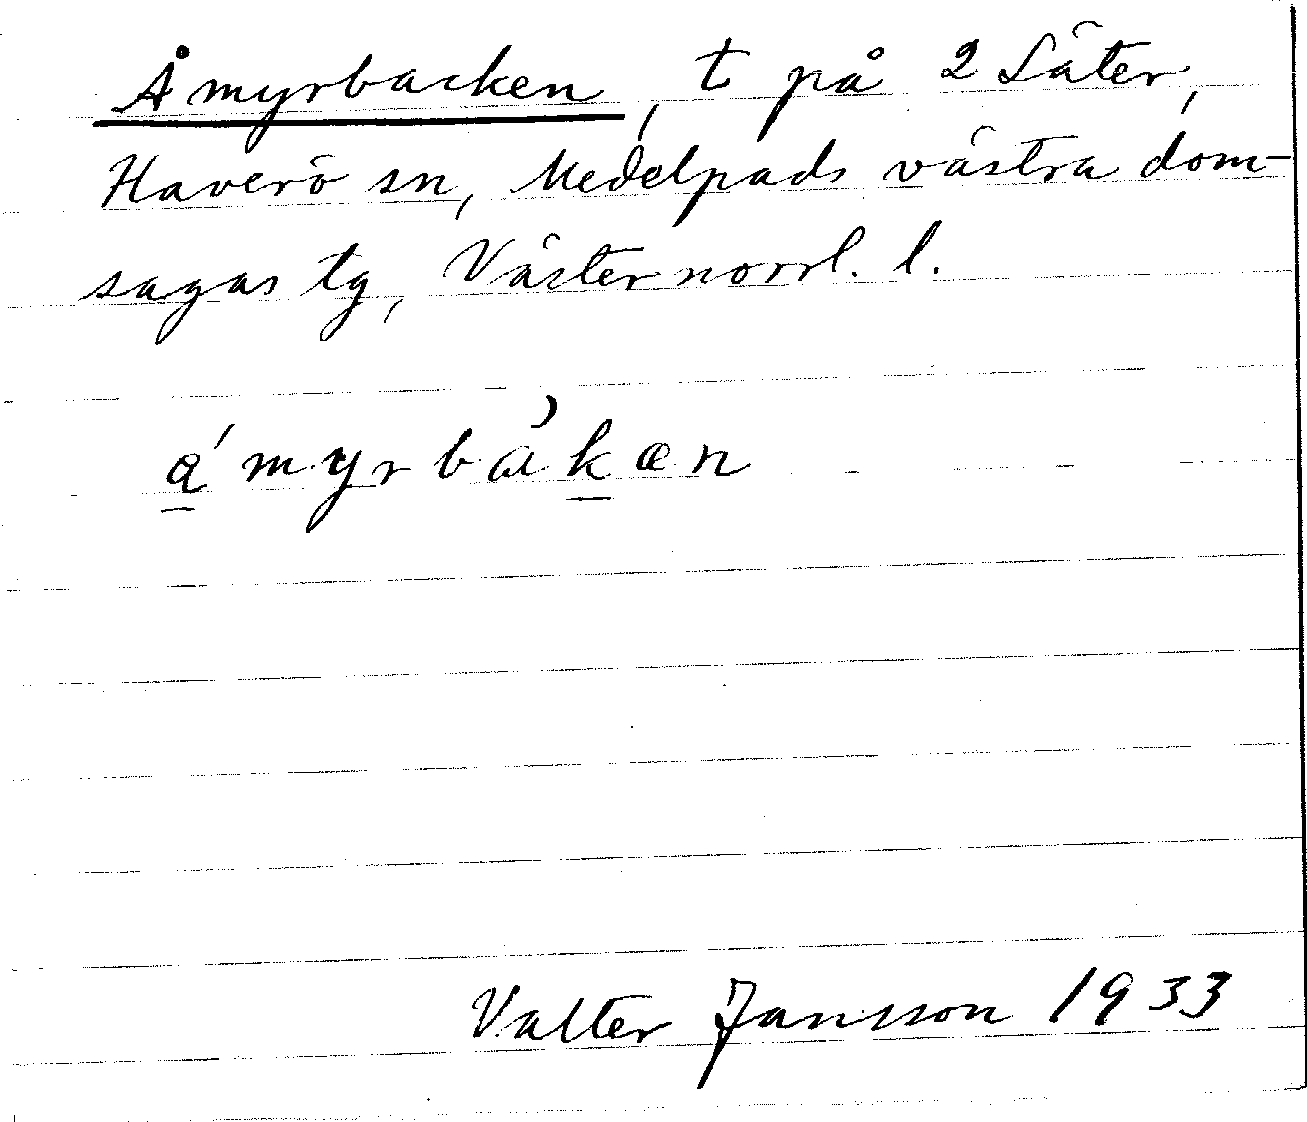 Åmyrbacken, t på 2 Säter,
Haverö sn, Medelpads västra dom-
sagas tg, Västernorrl. l.
Valter Jansson 1933